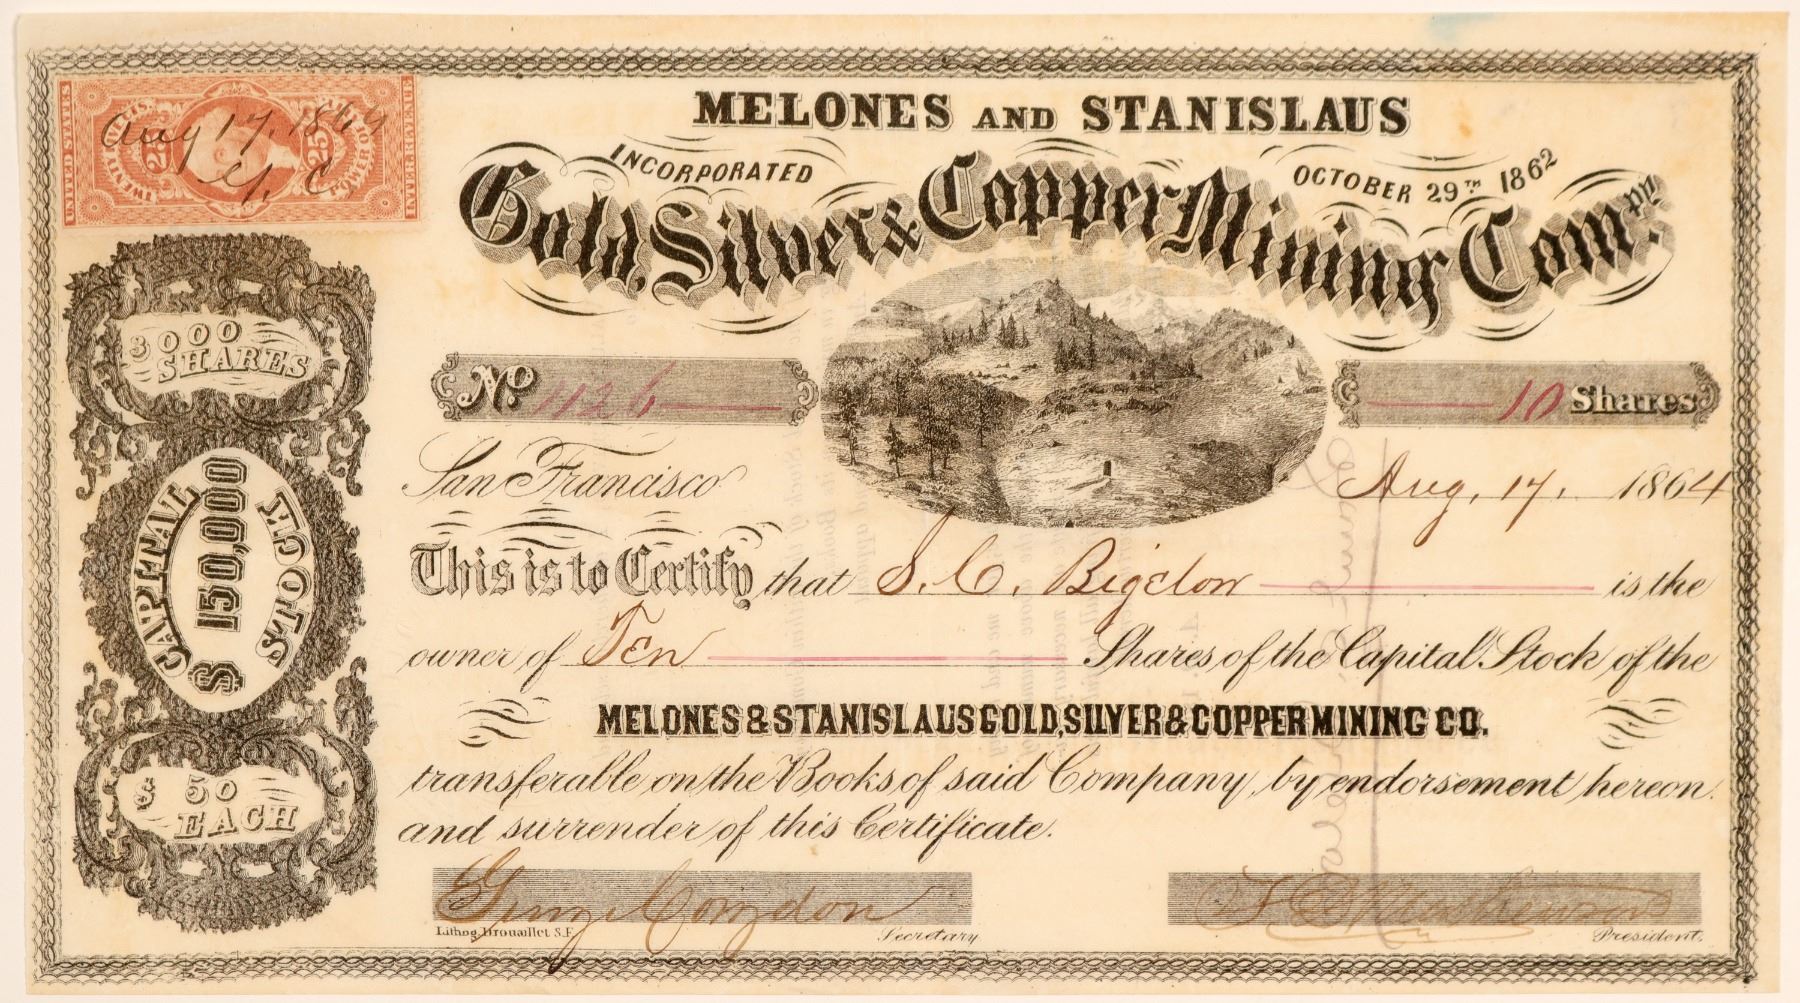 MELONES AND STANISLAUS
INCORPORATED OCTOBER 29TH 1862
Gold, Silver & Copper Mining Compy.
UNITED STATES
INTER. REVENUE
25
25
POWER OF
Aug 17, 1864
C
3000
SHARES
CAPITAL
$150,000
STOCK
$50
EACH
No. 1126
10 Shares
San Francisco Aug, 17, 1864
This is to Certify that S. C. Bigelow is the
owner of Ten Shares of the Capital Stock of the
MELONES & STANISLAUS GOLD, SILVER & COPPER MINING CO.
transferable on the Books of said Company, by endorsement hereon
and surrender of this Certificate.
Congdon
Lithog. Drouaillet S.F.
Secretary
President.